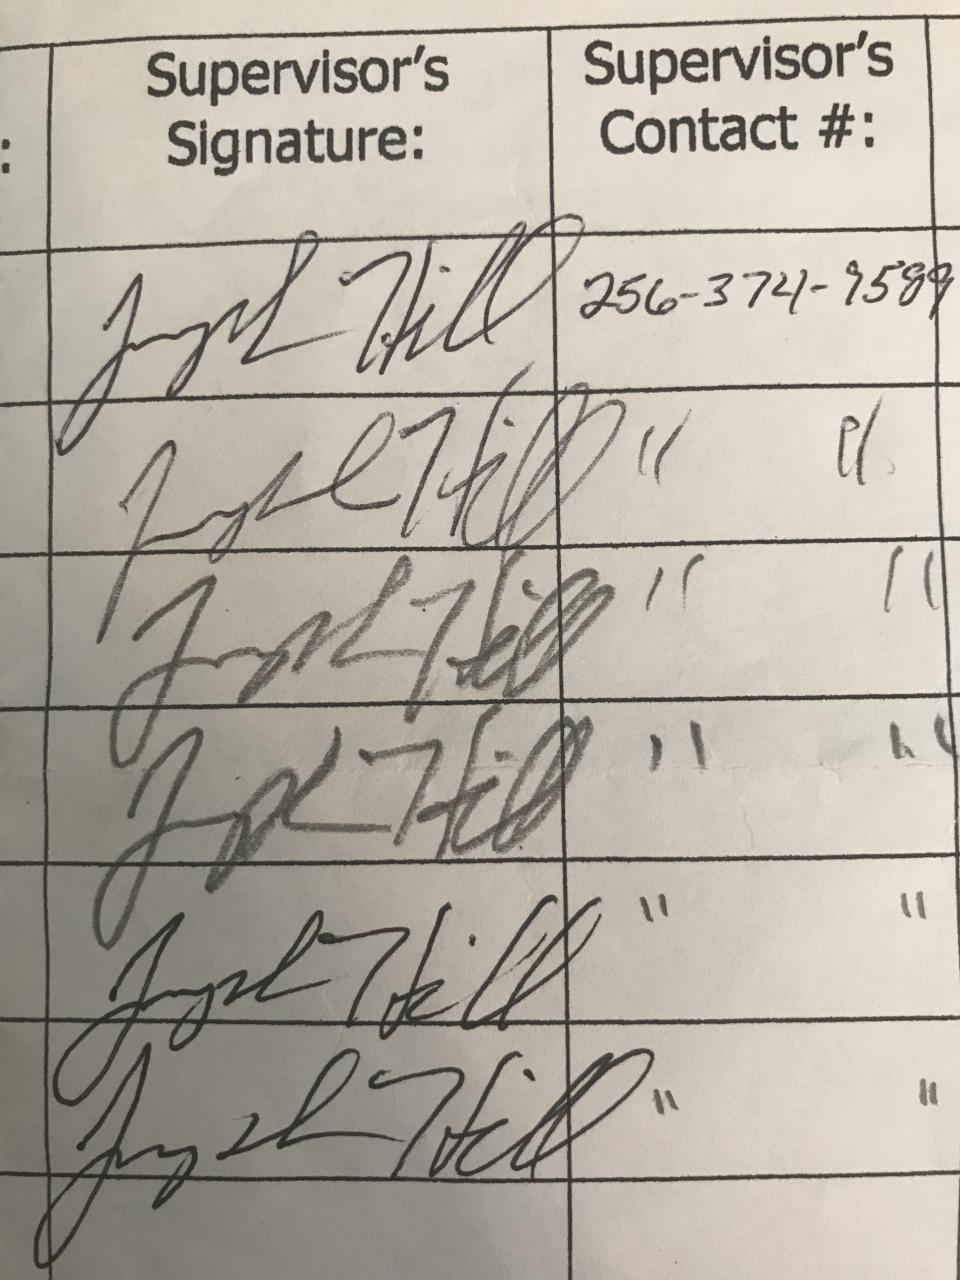 : Supervisor's Signature: Supervisor's Contact #:
Joseph Hill 256-374-9589
Joseph Hill " "
Joseph Hill " "
Joseph Hill " "
Joseph Hill " "
Joseph Hill " "